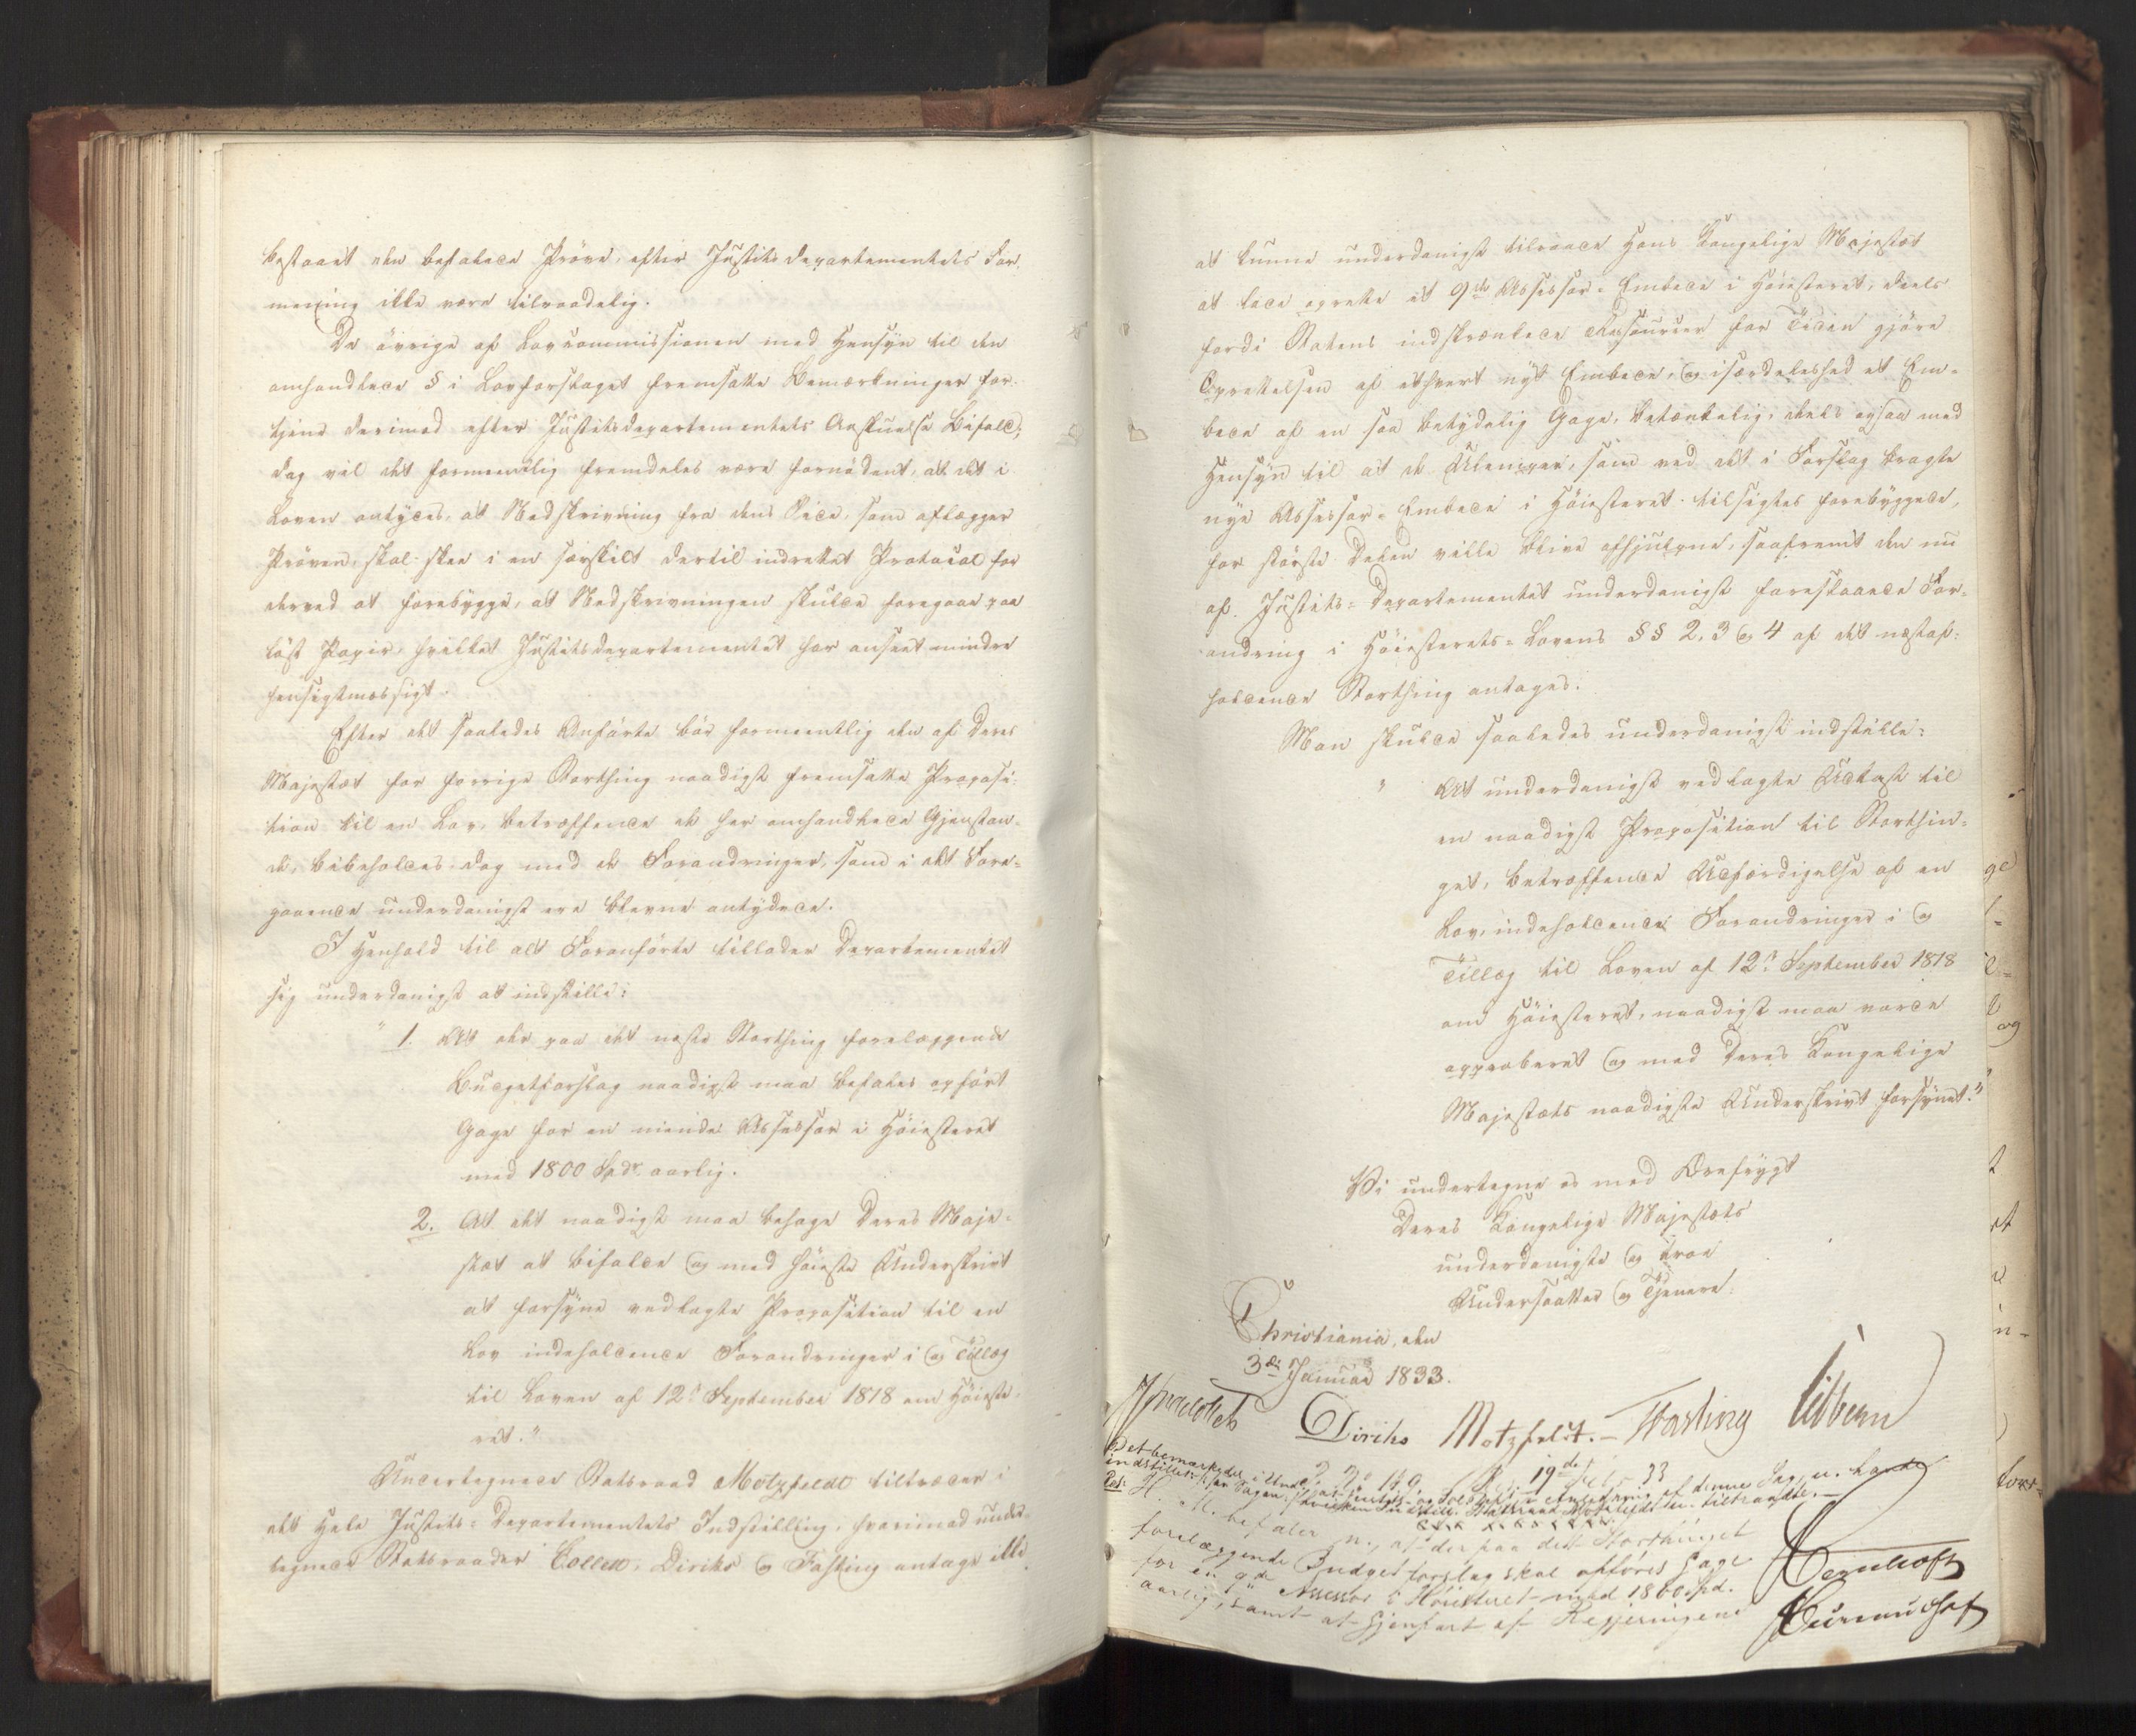 bestaaet den befalede Prøve, efter Justitsdepartementets For-
mening ikke være tilraadelig.
De øvrige af Lovcommissionen med Hensyn til den
omhandlede § i Lovforslaget fremsatte Bemærkninger for-
tjene derimod efter Justitsdepartementets Anskuelse Bifald;
dog vil det formeentlig fremdeles være fornødent, at det i
Loven antydes, at Nedskrivning fra dens Side, som aflægger
Prøven, skal skee i en særskilt dertil indrettet Protocol for
derved at forebygge, at Nedskrivningen skulde foregaae paa
løst Papir, hvilket Justitsdepartementet har anseet mindre
hensigtmæssigt.
Efter det saaledes Anførte bør formeentlig den af Deres
Majestæt for forrige Storthing naadigst fremsatte Proposi-
tion til en Lov, betræffende de her omhandlede Gjenstan-
de, bibeholdes dog med de Forandringer, som i det Fore-
gaaende underdanigst ere blevne antydede.
I Henhold til alt Foranførte tillader Departementet
sig underdanigst at indstille:
" 1. At der paa det næste Storthing forelæggende
Budgetforslag naadigst maa befales opført
Gage for en niende Assessor i Høiesteret
med 1800 Spdr aarlig.
2. At det naadigst maa behage Deres Maje-
stæt at bifalde og med høieste Underskrivt
at forsyne vedlagte Proposition til en
Lov indeholdende Forandringer i og Tillæg
til Loven af 12te September 1818 om Høieste-
ret."
Undertegnede Statsraad Motzfeldt tiltræder i
det Hele Justits-Departementets Indstilling, hvorimod under-
tegnede Statsraader Collett, Diriks og Fasting antage ikke
at kunne underdanigst tilraade Hans Kongelige Majestæt
at lade oprette et 9de Assessor-Embede i Høiesteret, deels
fordi Statens indskrænkede Ressourcer for Tiden gjøre
Oprettelsen af ethvert nyt Embede, og isærdeleshed et Em-
bede af en saa betydelig Gage, betænkelig, deels ogsaa med
Hensyn til at de Ulemper, som ved det i Forslag bragte
nye Assessor-Embede i Høiesteret tilsigtes forebyggede,
for største Delen ville blive afhjulpne, saafremt den nu
af Justits-Departementet underdanigst foreslaaede For-
andring i Høiesterets-Lovens §§ 2, 3 og 4 af det næstaf-
holdende Storthing antages.
Man skulde saaledes underdanigst indstille:
" At underdanigst vedlagte Udkast til
en naadigst Proposition til Storthin-
get, betræffende Udfærdigelse af en
Lov, indeholdende Forandringer i og
Tillæg til Loven af 12te September 1818
om Høiesteret, naadigst maa vorde
approberet og med Deres Kongelige
Majestæts naadigste Underskrivt forsynet."
Vi undertegne os med Ærefrygt
Deres Kongelige Majestæts
underdanigste og troe
Undersaatter og Tjenere.
Christiania, den
3de Januar 1833.
Collett Diriks Motzfeldt. Fasting Vibe
Det bemærkedes
indstillet Statsraad Motzfeldt tiltraadte.
Res: H. M. befaler n., at der paa det Storthinget
forelæggende Budgetforslag skal opføres Gage
for en 9de Assessor i Høiesteret med 1800 Spd.
aarlig, samt at Gjenpart af Regjeringens